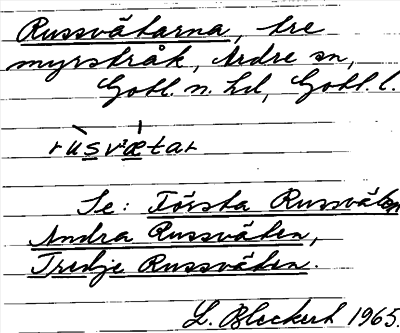 Russvätarna, tre
myrstråk, Ardre sn,
Gotl. n. hd, Gotl. l.
rùsvætar
Se: Första Russväten
Andra Russväten,
Tredje Russväten.
L. Bleckert 1965.